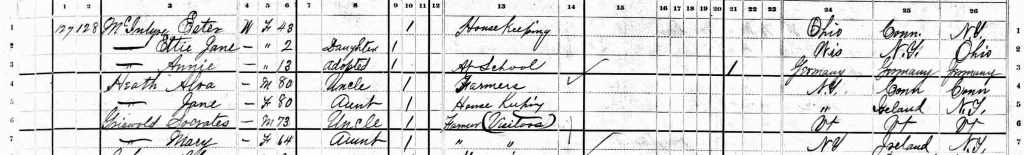 1 2 3 4 5 6 7 8 9 10 11 12 13 14 15 16 17 18 19 20 21 22 23 24 25 26
1 127 128 McIntyre Ester W F 43 1 Housekeeping Ohio Conn. N.Y. 1
2 — Ettie Jane — " 2 Daughter 1 Wis N.Y. Ohio 2
3 — " Annie — " 13 adopted 1 At School 1 Germany Germany Germany 3
4 Heath Alva — M 80 Uncle 1 Farmers N.Y. Conn Conn 4
5 — " Jane — F 80 Aunt 1 House Keeping " Ireland N.Y. 5
6 Griswold Socrates — M 73 Uncle 1 Farmer (Visitors) Vt Vt Vt 6
7 — " Mary — F 64 Aunt 1 " " N.Y. Ireland N.Y. 7